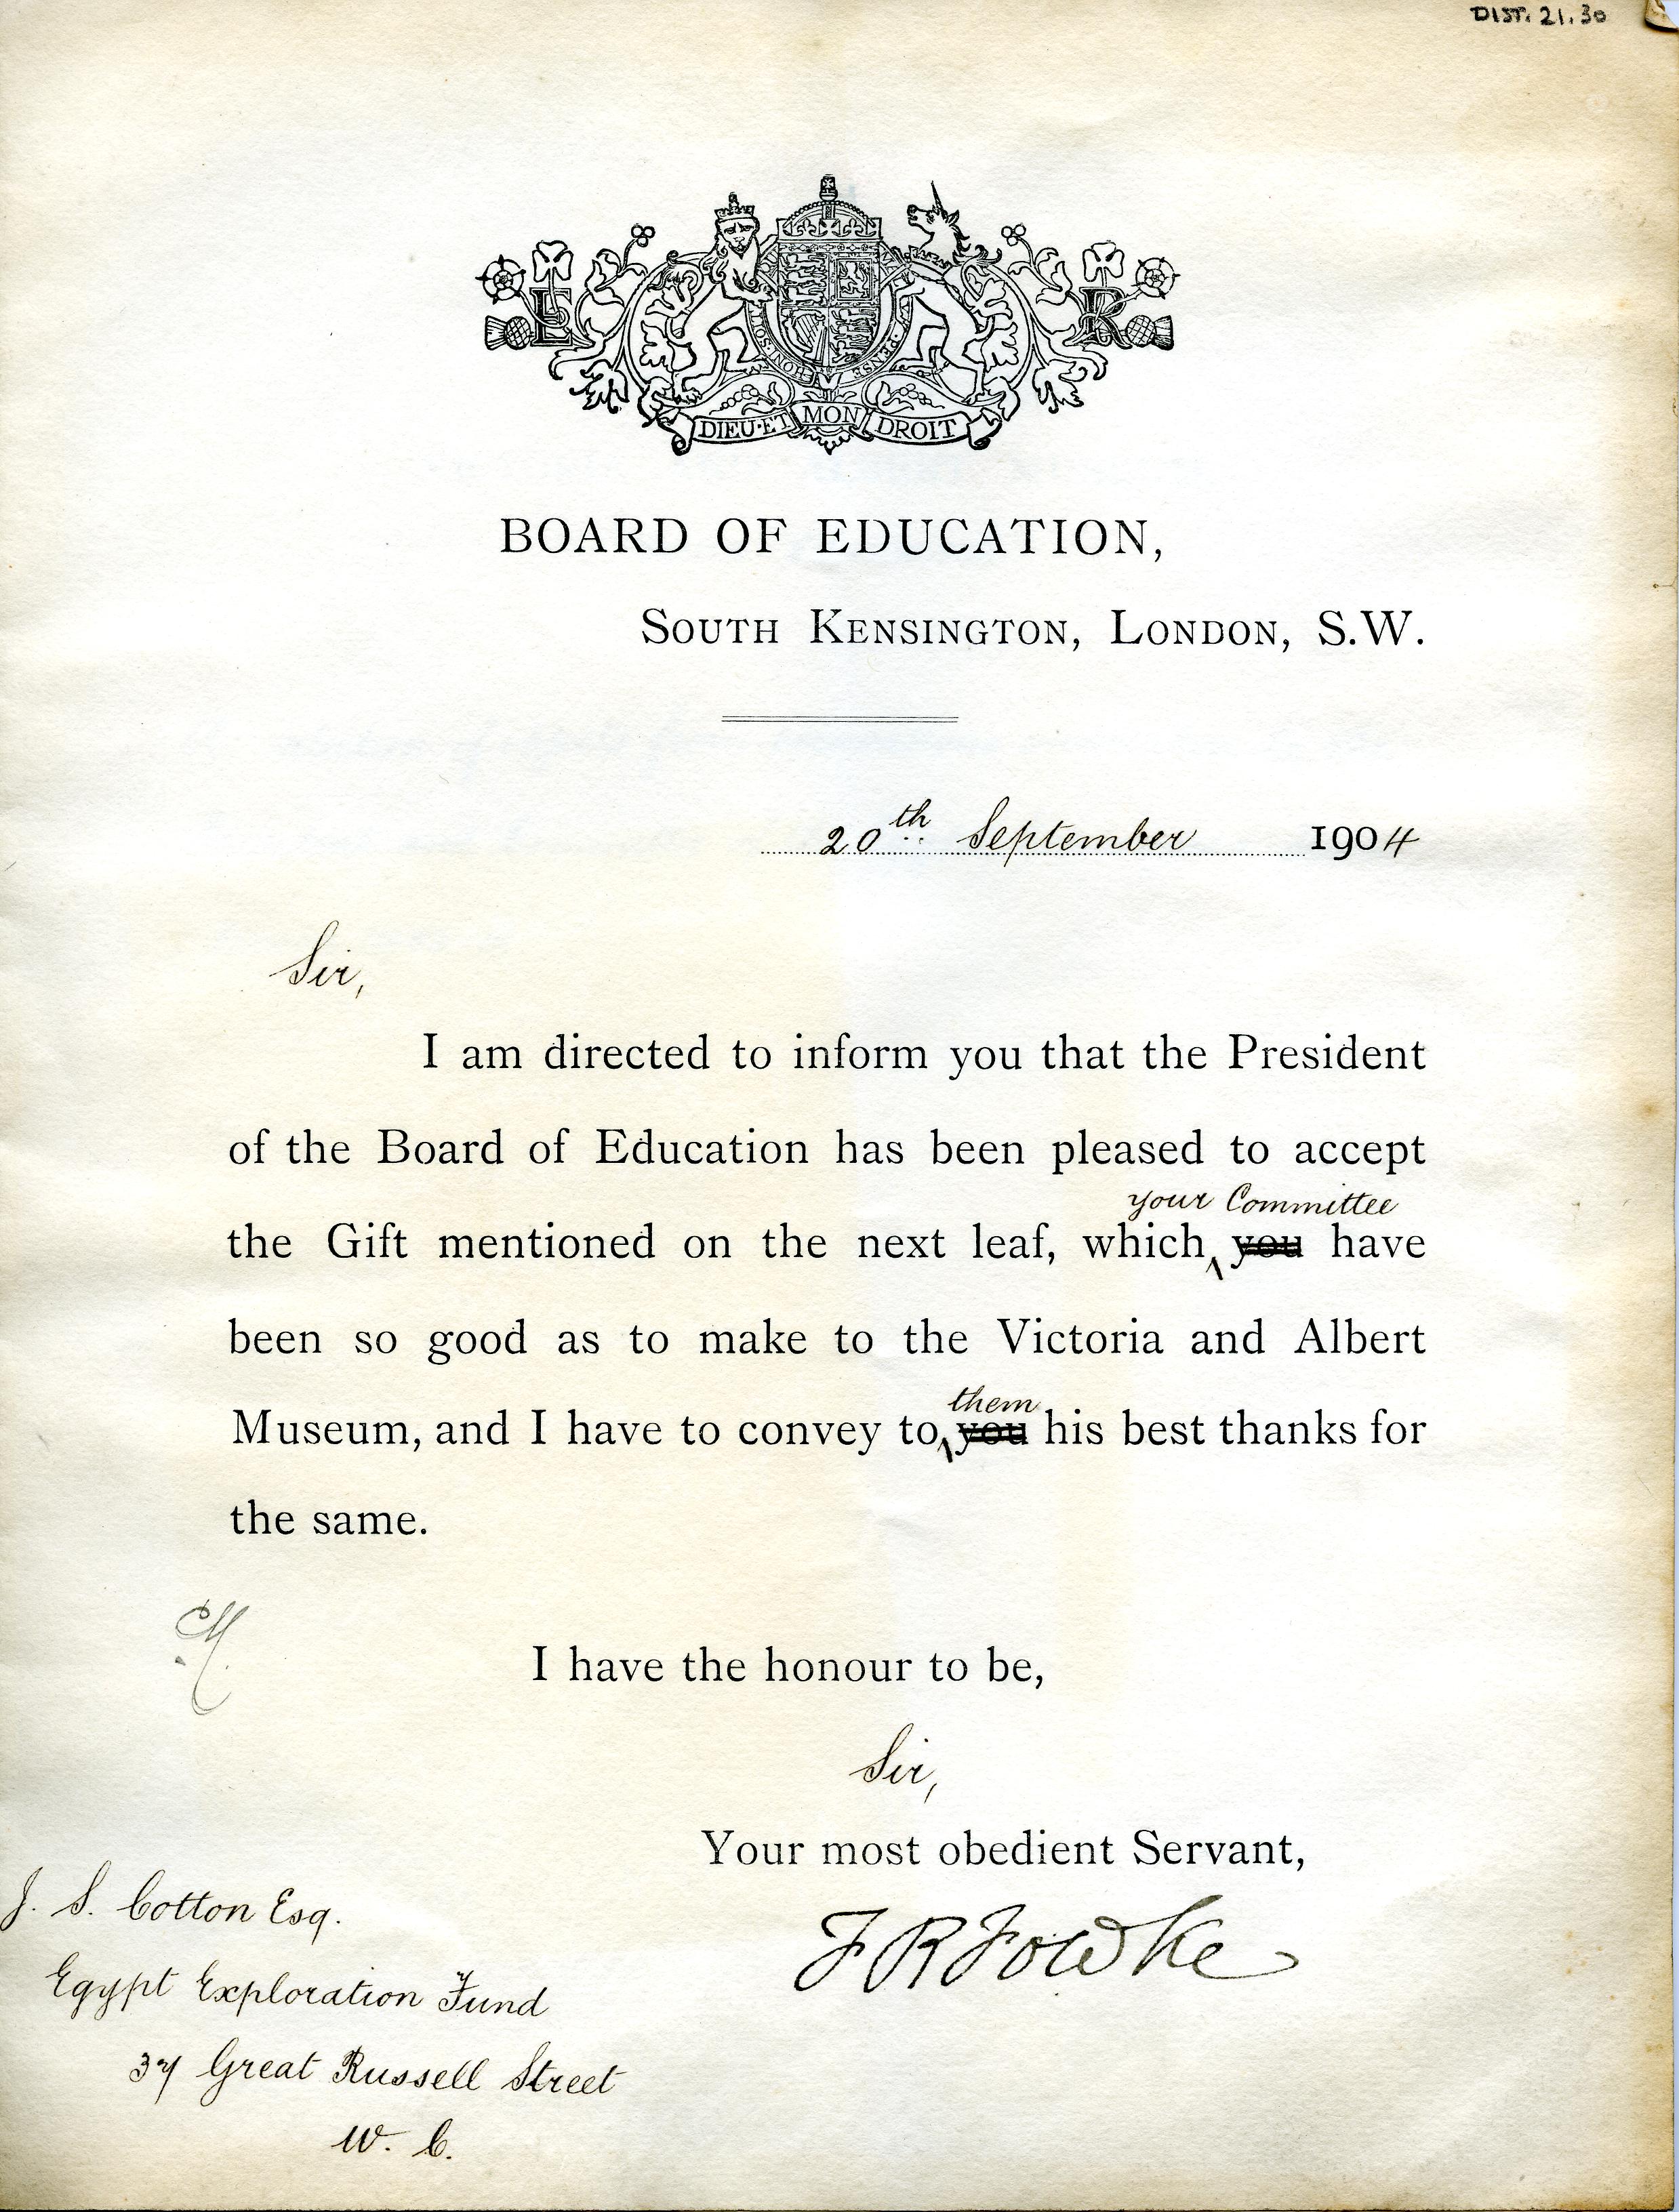 DIST. 21.30
E R
HONI SOIT
PENSE
DIEU·ET MON DROIT
BOARD OF EDUCATION,
SOUTH KENSINGTON, LONDON, S.W.
20th September 1904
Sir,
I am directed to inform you that the President
of the Board of Education has been pleased to accept
your Committee
the Gift mentioned on the next leaf, which you have
been so good as to make to the Victoria and Albert
them
Museum, and I have to convey to you his best thanks for
the same.
I have the honour to be,
Sir,
Your most obedient Servant,
F R Fowke
J. S. Cotton Esq.
Egypt Exploration Fund
37 Great Russell Street
W. C.